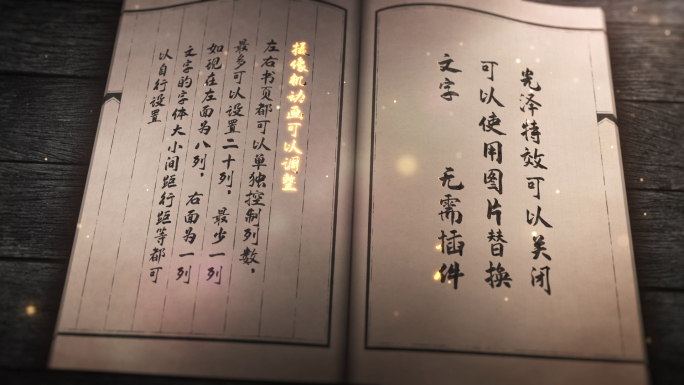 光泽特效可以关闭
可以使用图片替换
文字 无需插件
摄像机动画可以调整
左右书页都可以单独控制列数，
最多可以设置二十列，最少一列
如现在左面为八列，右面为一列
文字的字体大小间距行距等都可
以自行设置